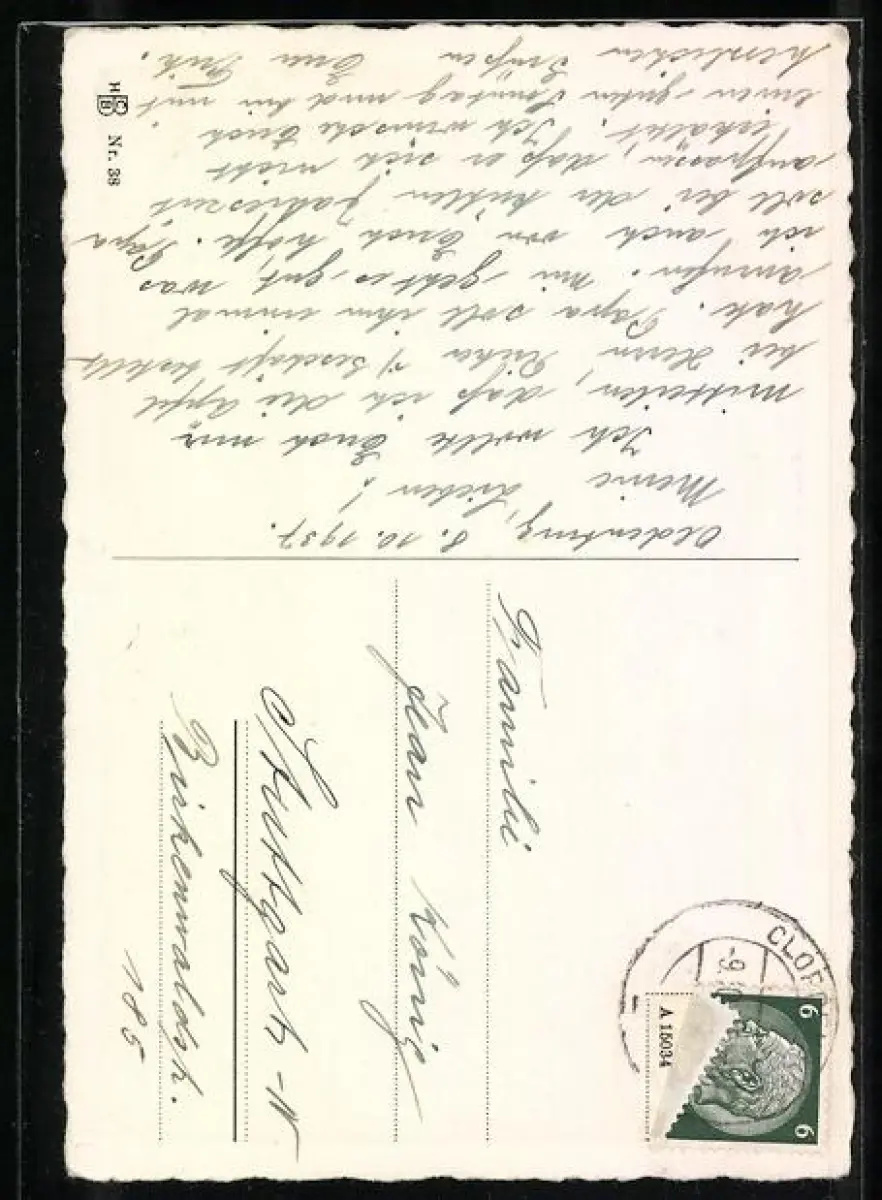 Oldenburg, 8.10.1937.
Meine Lieben!
Ich wollte Euch nur
mitteilen, daß ich die Äpfel
bei Herrn i/ Geschäft bestellt
hab. Papa soll ihm einmal
anrufen. Mir geht es gut, was
ich auch von Euch hoffe. Papa
soll bei der kühlen Jahreszeit
aufpassen, daß er sich nicht
erkältet. Ich wünsche Euch
einen guten Sonntag und bin mit
herzlichen Grüßen Euer
HCB Nr. 38
Familie
Jean König
Stuttgart-N
Birkenwaldstr.
185
CLOP
-9.
6
6
A 15034